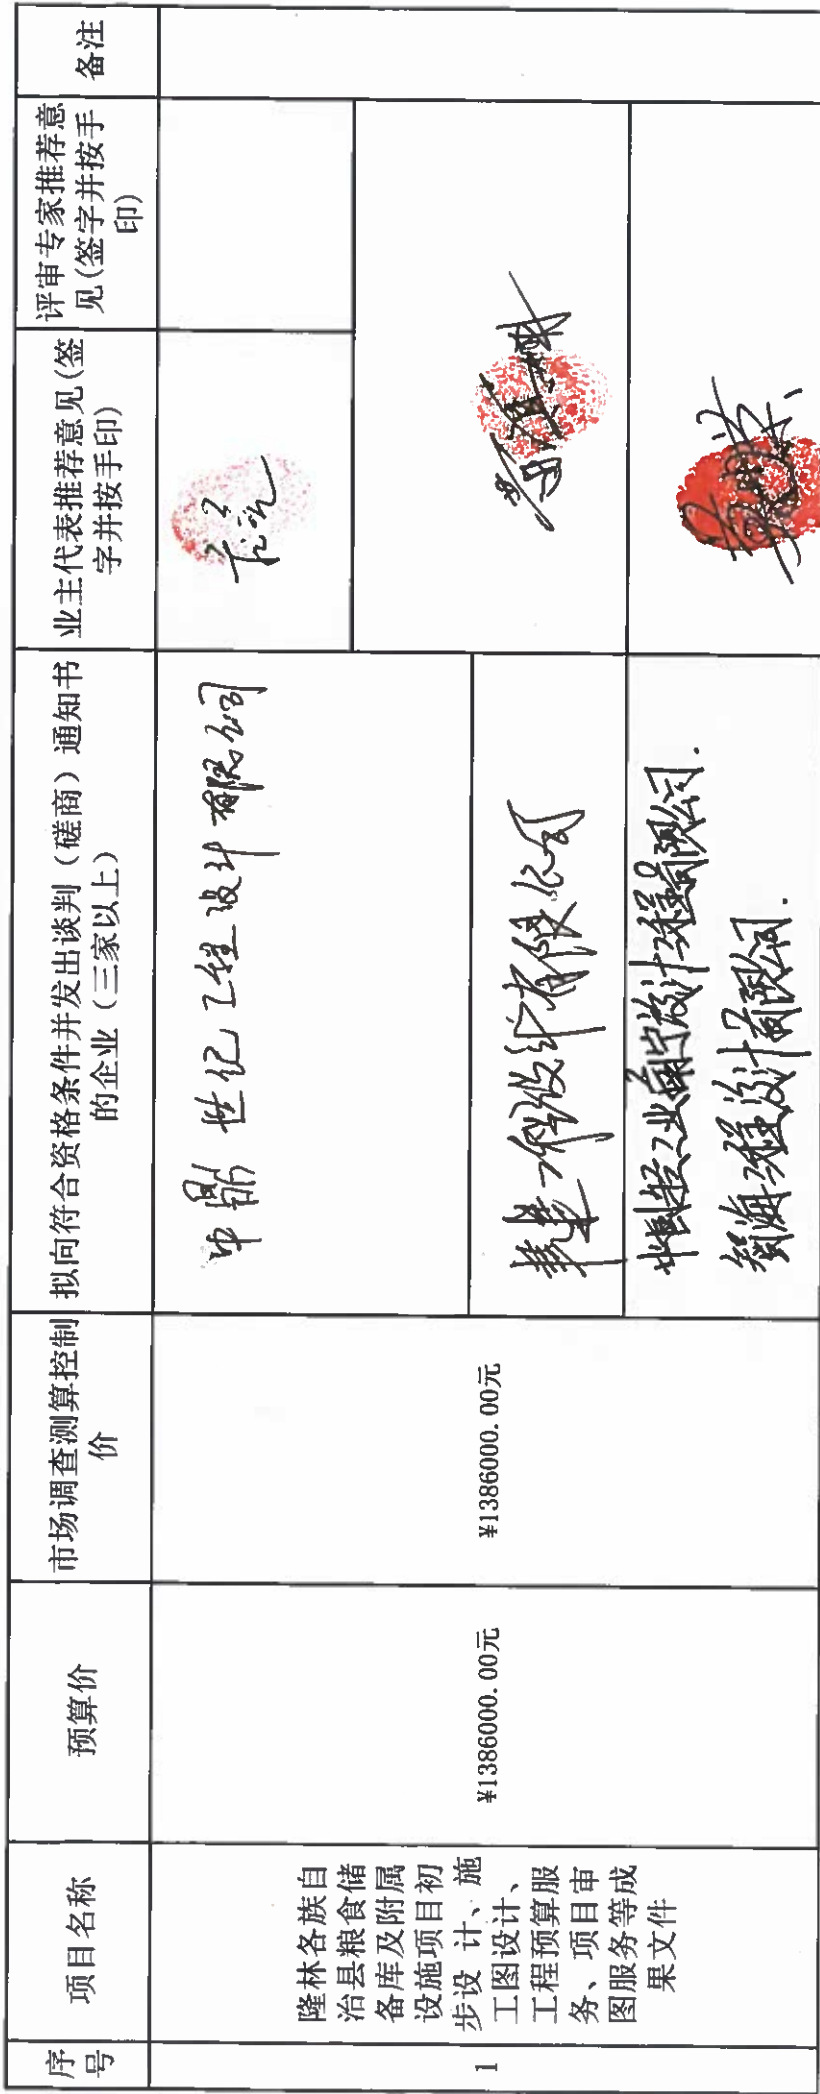 序
号
项目名称
预算价
市场调查测算控制
价
拟向符合资格条件并发出谈判（磋商）通知书
的企业（三家以上）
业主代表推荐意见(签
字并按手印)
评审专家推荐意
见(签字并按手
印)
备注
1
隆林各族自
治县粮食储
备库及附属
设施项目初
步设 计、施
工图设计、
工程预算服
务、项目审
图服务等成
果文件
¥1386000.00元
¥1386000.00元
中鼎世纪工程设计有限公司
工程设计有限公司
中国轻工业南宁设计工程有限公司.
海工程设计有限公司.